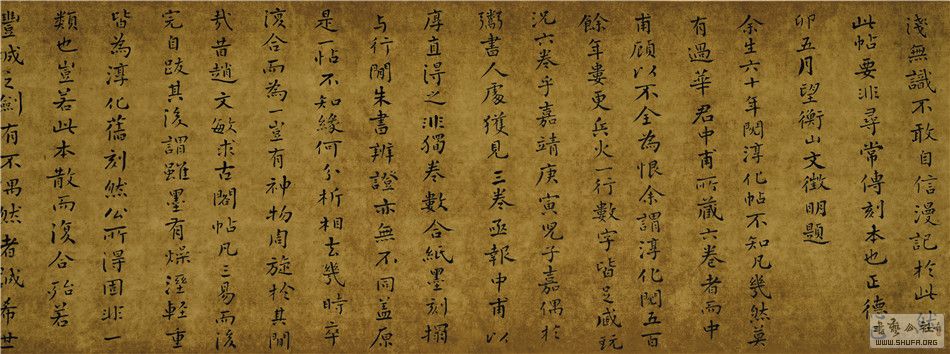 淺無識不敢自信漫記於此
此帖要非尋常傳刻本也正德
卯五月望衡山文徵明題
余生六十年閱淳化帖不知凡幾然莫
有過華君中甫所藏六卷者而中
甫顧以不全為恨余謂淳化閱五百
餘年婁更兵火一行數字皆足藏玩
況六卷乎嘉靖庚寅兒子嘉偶於
鬻書人處獲見三卷亟報中甫以
厚直得之非獨卷數合紙墨刻搨
与行閒朱書辨證亦無不同蓋原
是一帖不知緣何分析相去幾時卒
復合而為一豈有神物周旋於其閒
哉昔趙文敏求古閣帖凡三易而後
完自跋其後謂雖墨有燥溼輕重
皆為淳化舊刻然公所得固非一
類也豈若此本散而復合殆若
豐城之劍有不偶然者誠希世
WWW.SHUFA.ORG